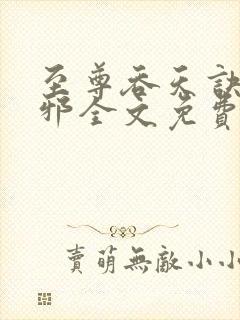 至尊吞天訣
邪全文免費
賣萌無敵小小